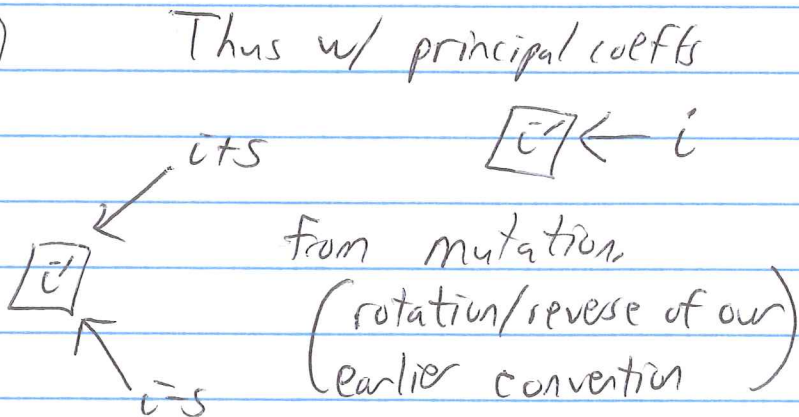 )
Thus w/ principal coeffs
i+s
i' ← i
from mutation.
i'
(rotation/reverse of our
earlier convention)
i-s